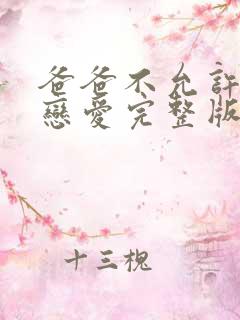 爸爸不允許
戀愛完整版
十三槐